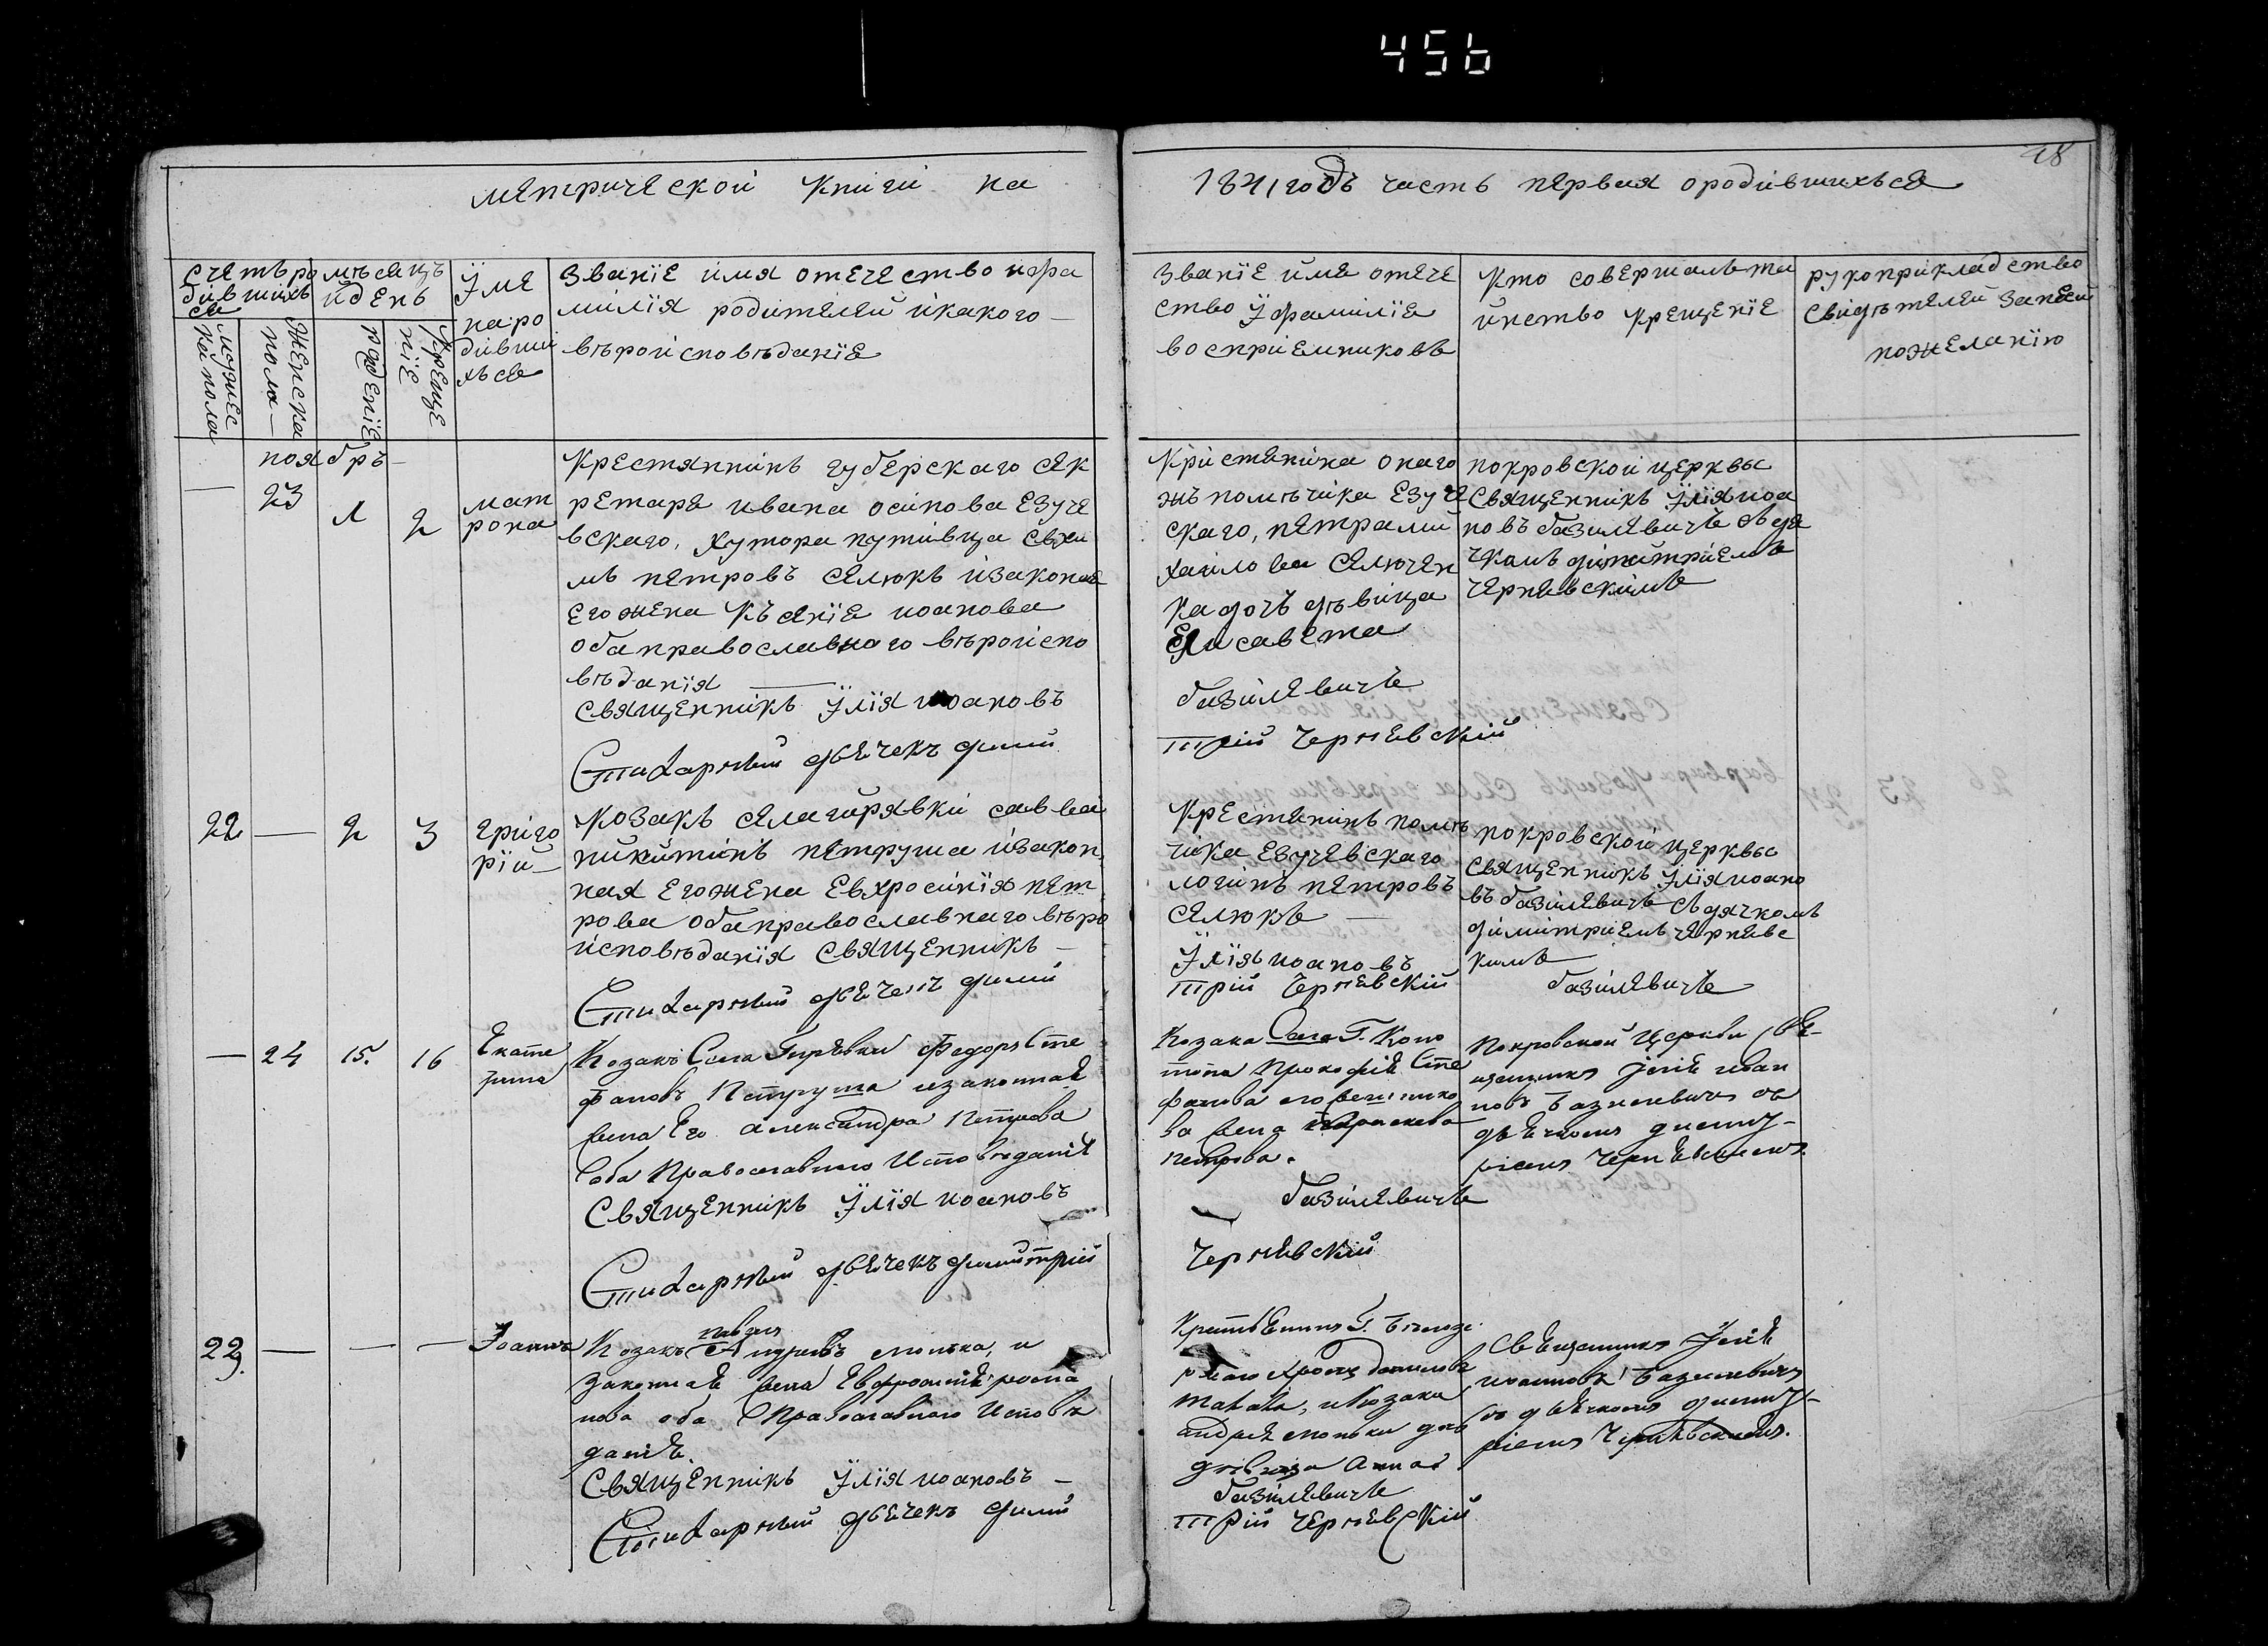 456
28
мятрической книги на
184/годъ часть пярвая ородившихъся
счятъро
дившихъ
ся
мѣсяцъ
идень
Ӱмя
наро
дивши
хъся
званїе имя отечество ифа
милїя родителяй икакого
вѣройсповѣданїя
званїе имя отече
ство Ӱ фамилїя
восприемниковъ
кто совершалъта
инство крещенїе
рукоприкладство
свидѣтеляй запися
пожеланїю
мужес
кай пола
женска
пола
рождѣнїе
креще
нїе
ноябръ
— 23 1 2
мат
рона
крестянинъ губерскаго сяк
ретаря ивана осипова езуче
вскаго, хутора путивца
мъ пятровъ сялюкъ изаконая
его жена иоанова
оба православного вѣройспо
вѣданїя
священникъ Ӱлїя иоановъ
Стихарный дьячекъ дими
кристянина онаго
жъ помѣчика езуче
скаго, пятрами
хайлова сялючен
ка дочъ дѣвица
Елисавета
базилявичъ
трій Чернявскій
покровской церквы
священникъ Ӱлїя иоа
новъ базилявичъ съдя
чкомъ димитриемъ
чярнявскимъ
22 — 2 3
григо
рїй
козакъ сялагирявки савва
никитинъ пятруша изакон
ная егожена евхросинїя пят
рова оба православнаго вѣро
исповѣданїя священникъ —
Стихарный дьячекъ дими
крестянинъ помѣ
чика езучевскаго
логинъ пятровъ
сялюкъ
Ӱлїя иоановъ
трій Чернявскій
покровской церквы
священникъ Ӱлїя иоано
въ базилявичъ съ дячкомъ
димитриемъ чярнявс
кимъ
базилявичъ
— 24 15. 16
Екате
рина
Козакъ Села Гирявки Федоръ Сте
фановъ Петруша изаконная
жена Его александра Петрова
оба Православнаго Исповѣданія
священникъ Ӱлїя иоановъ
Стихарный дьячекъ димитрій
Козака Села Г. Коно
топа Прокофія Сте
фанова его
ва жена Параскева
Петрова.
базилявичъ
Чернявскій
Покровской Церкви Свя
щенникъ Ілія иван
новъ Базилевичъ съ
дьячкомъ димит
ріемъ Чернявскимъ
22. — — — Іоаннъ
Козакъ Андреевъ и
законная жена Евфросинія рома
нова оба Православнаго Исповѣ
данія.
священникъ Ӱлїя иоановъ —
Стихарный дьячекъ дими
данилова
и Козака
андрея дочь
дѣвица Анна
базилявичъ
трій Чернявскій
Священникъ Ілія
иоановъ Базилевичъ
съ дьячкомъ димит
ріемъ Чернявскимъ.